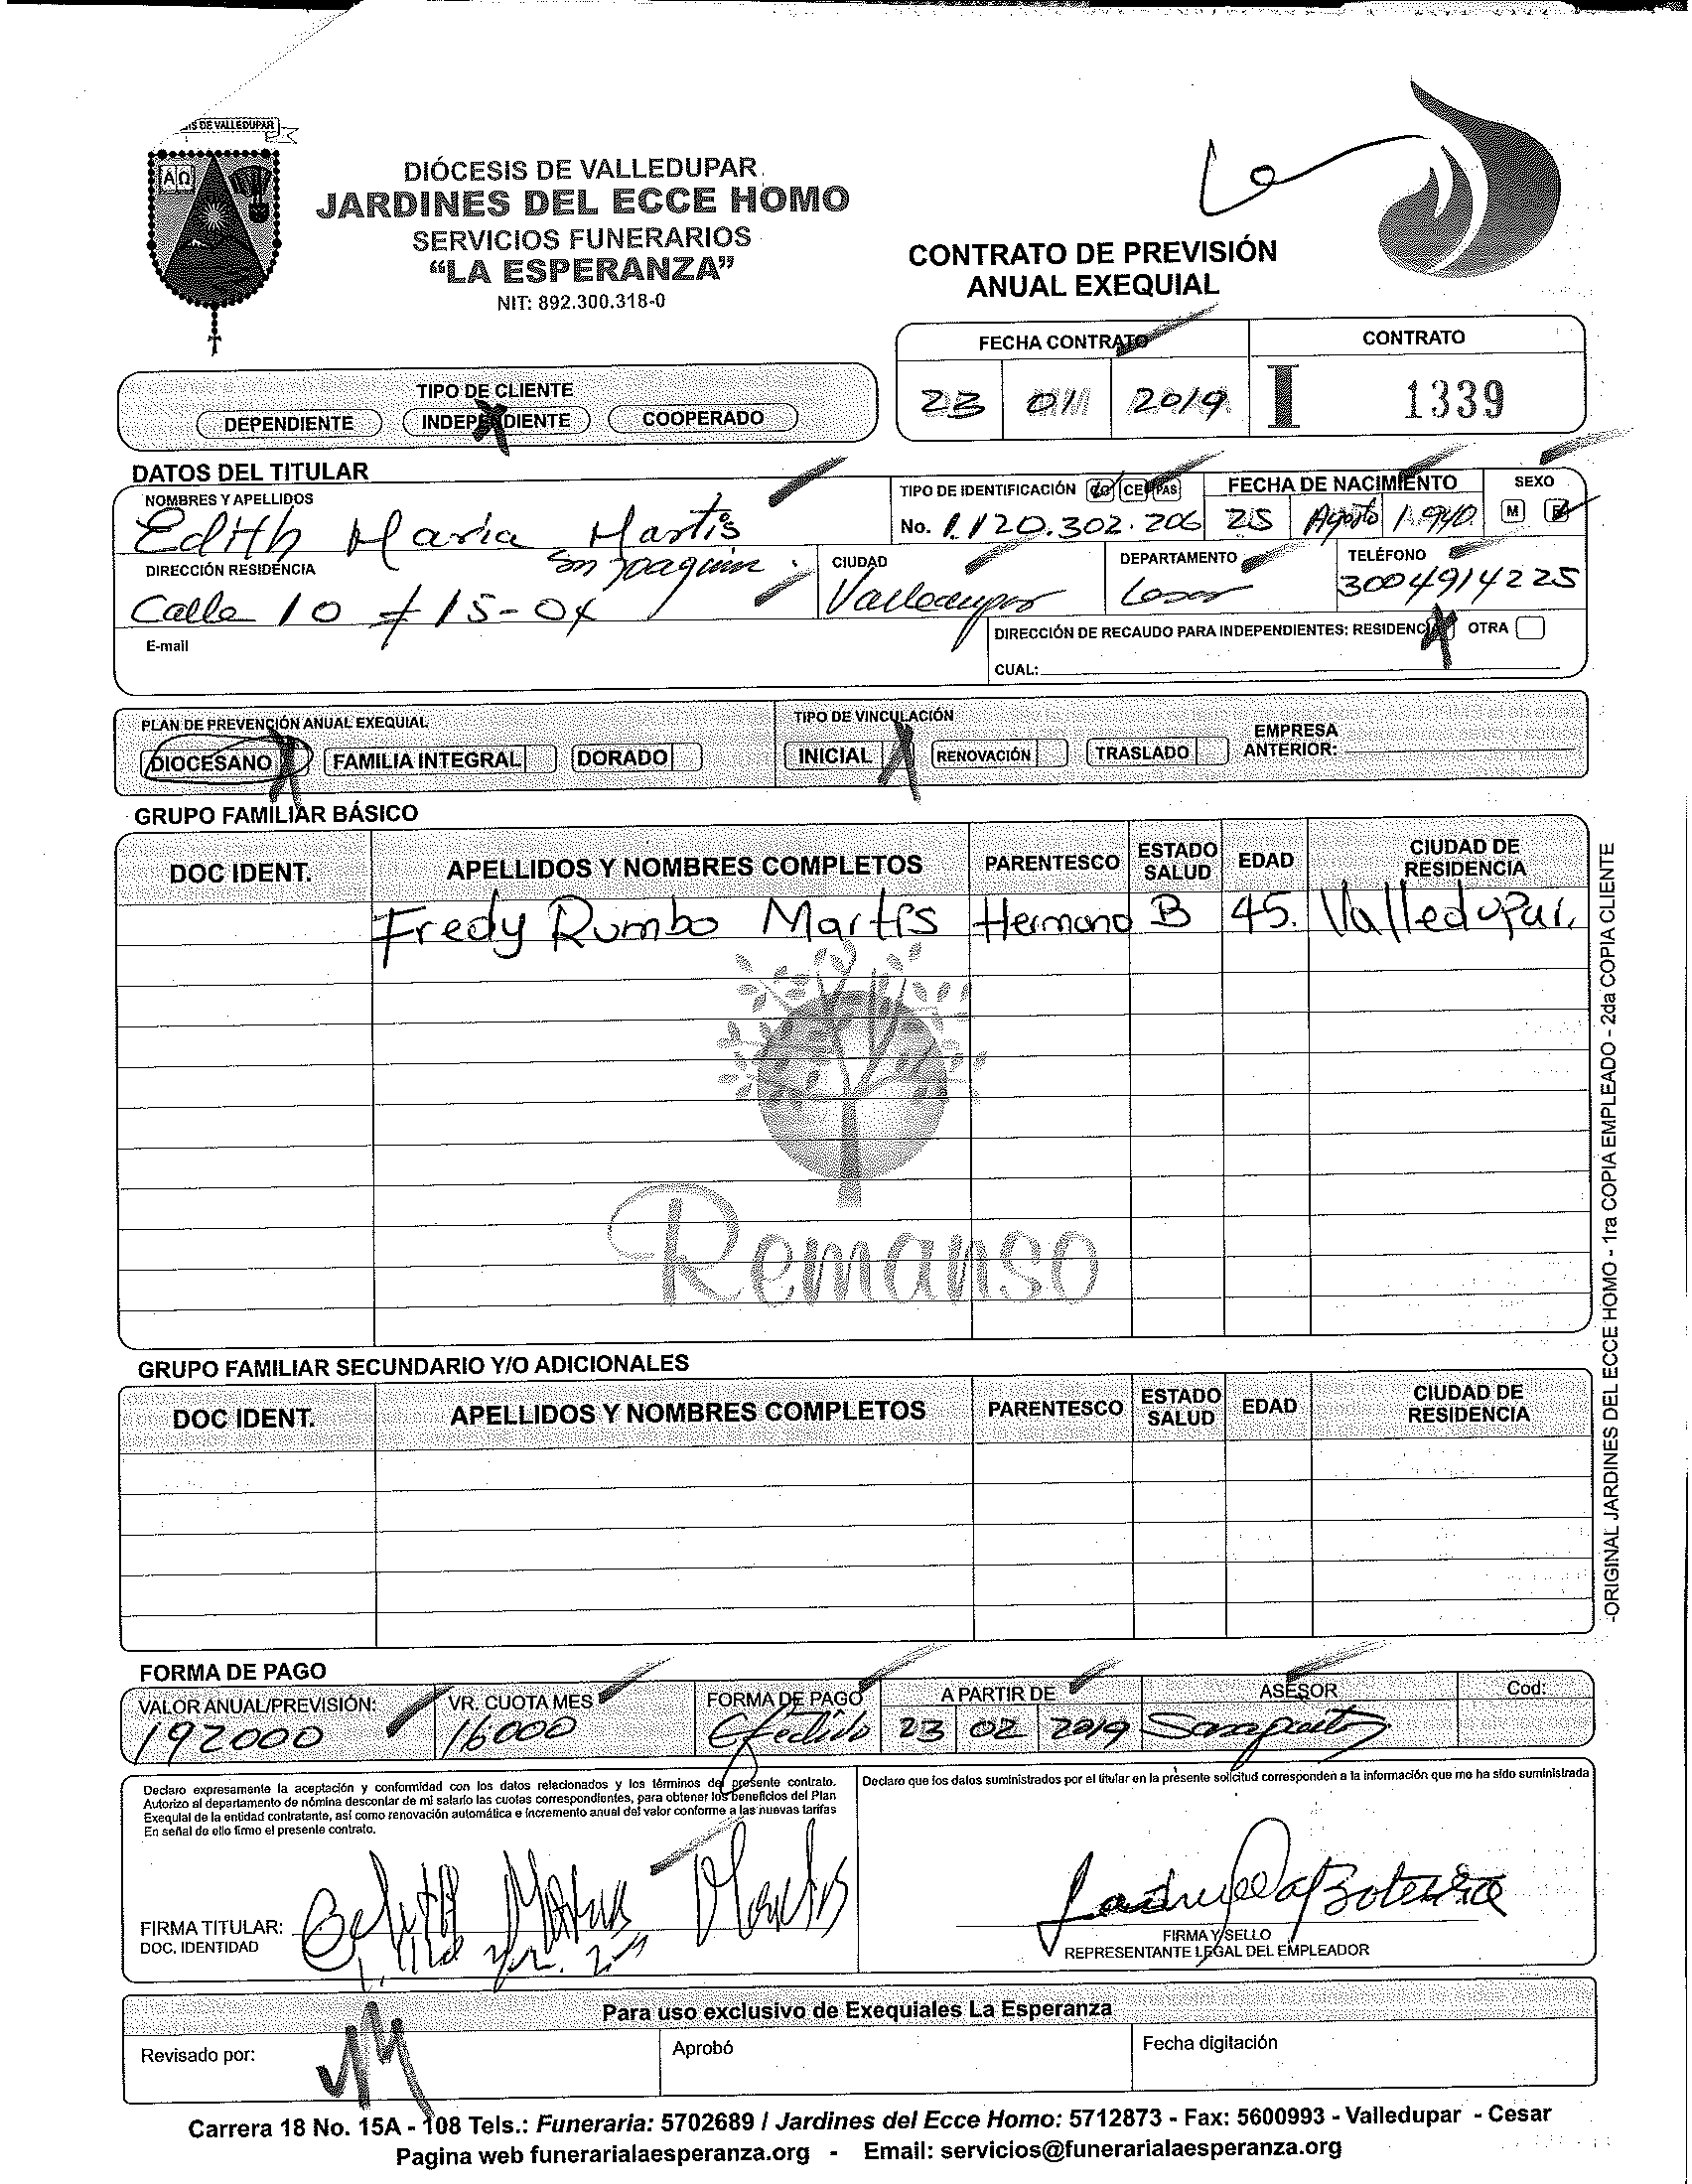 IS DE VALLEDUPAR
A Ω
DIÓCESIS DE VALLEDUPAR
JARDINES DEL ECCE HOMO
SERVICIOS FUNERARIOS
“LA ESPERANZA”
NIT: 892.300.318-0
CONTRATO DE PREVISIÓN
ANUAL EXEQUIAL
FECHA CONTRATO CONTRATO
23 01 2019 I 1339
TIPO DE CLIENTE
DEPENDIENTE INDEPENDIENTE COOPERADO
DATOS DEL TITULAR
NOMBRES Y APELLIDOS TIPO DE IDENTIFICACIÓN CC CE PAS FECHA DE NACIMIENTO SEXO
Edith Maria Martis No. 1.120.302.206 25 Agosto 1.940 M F
DIRECCIÓN RESIDENCIA Sn Joaquin. CIUDAD DEPARTAMENTO TELÉFONO
Calle 10 # 15-04 Valledupar Cesar 3004914225
E-mail DIRECCIÓN DE RECAUDO PARA INDEPENDIENTES: RESIDENCIA OTRA
CUAL:
PLAN DE PREVENCIÓN ANUAL EXEQUIAL TIPO DE VINCULACIÓN EMPRESA
DIOCESANO FAMILIA INTEGRAL DORADO INICIAL RENOVACIÓN TRASLADO ANTERIOR:
GRUPO FAMILIAR BÁSICO
DOC IDENT. APELLIDOS Y NOMBRES COMPLETOS PARENTESCO ESTADO SALUD EDAD CIUDAD DE RESIDENCIA
Fredy Rumbo Martis Hermano B 45. Valledupar.
Remanso
GRUPO FAMILIAR SECUNDARIO Y/O ADICIONALES
DOC IDENT. APELLIDOS Y NOMBRES COMPLETOS PARENTESCO ESTADO SALUD EDAD CIUDAD DE RESIDENCIA
-ORIGINAL JARDINES DEL ECCE HOMO - 1ra COPIA EMPLEADO - 2da COPIA CLIENTE
FORMA DE PAGO
VALOR ANUAL/PREVISIÓN: VR. CUOTA MES FORMA DE PAGO A PARTIR DE ASESOR Cod:
192000 16000 Efectivo 23 02 2019
Declaro expresamente la aceptación y conformidad con los datos relacionados y los términos del presente contrato.
Autorizo al departamento de nómina descontar de mi salario las cuotas correspondientes, para obtener los beneficios del Plan
Exequial de la entidad contratante, así como renovación automática e incremento anual del valor conforme a las nuevas tarifas
En señal de ello firmo el presente contrato.
Declaro que los datos suministrados por el titular en la presente solicitud corresponden a la información que me ha sido suministrada
FIRMA TITULAR:
DOC. IDENTIDAD
FIRMA Y SELLO
REPRESENTANTE LEGAL DEL EMPLEADOR
Para uso exclusivo de Exequiales La Esperanza
Revisado por: Aprobó Fecha digitación
Carrera 18 No. 15A - 108 Tels.: Funeraria: 5702689 / Jardines del Ecce Homo: 5712873 - Fax: 5600993 - Valledupar - Cesar
Pagina web funerarialaesperanza.org - Email: servicios@funerarialaesperanza.org